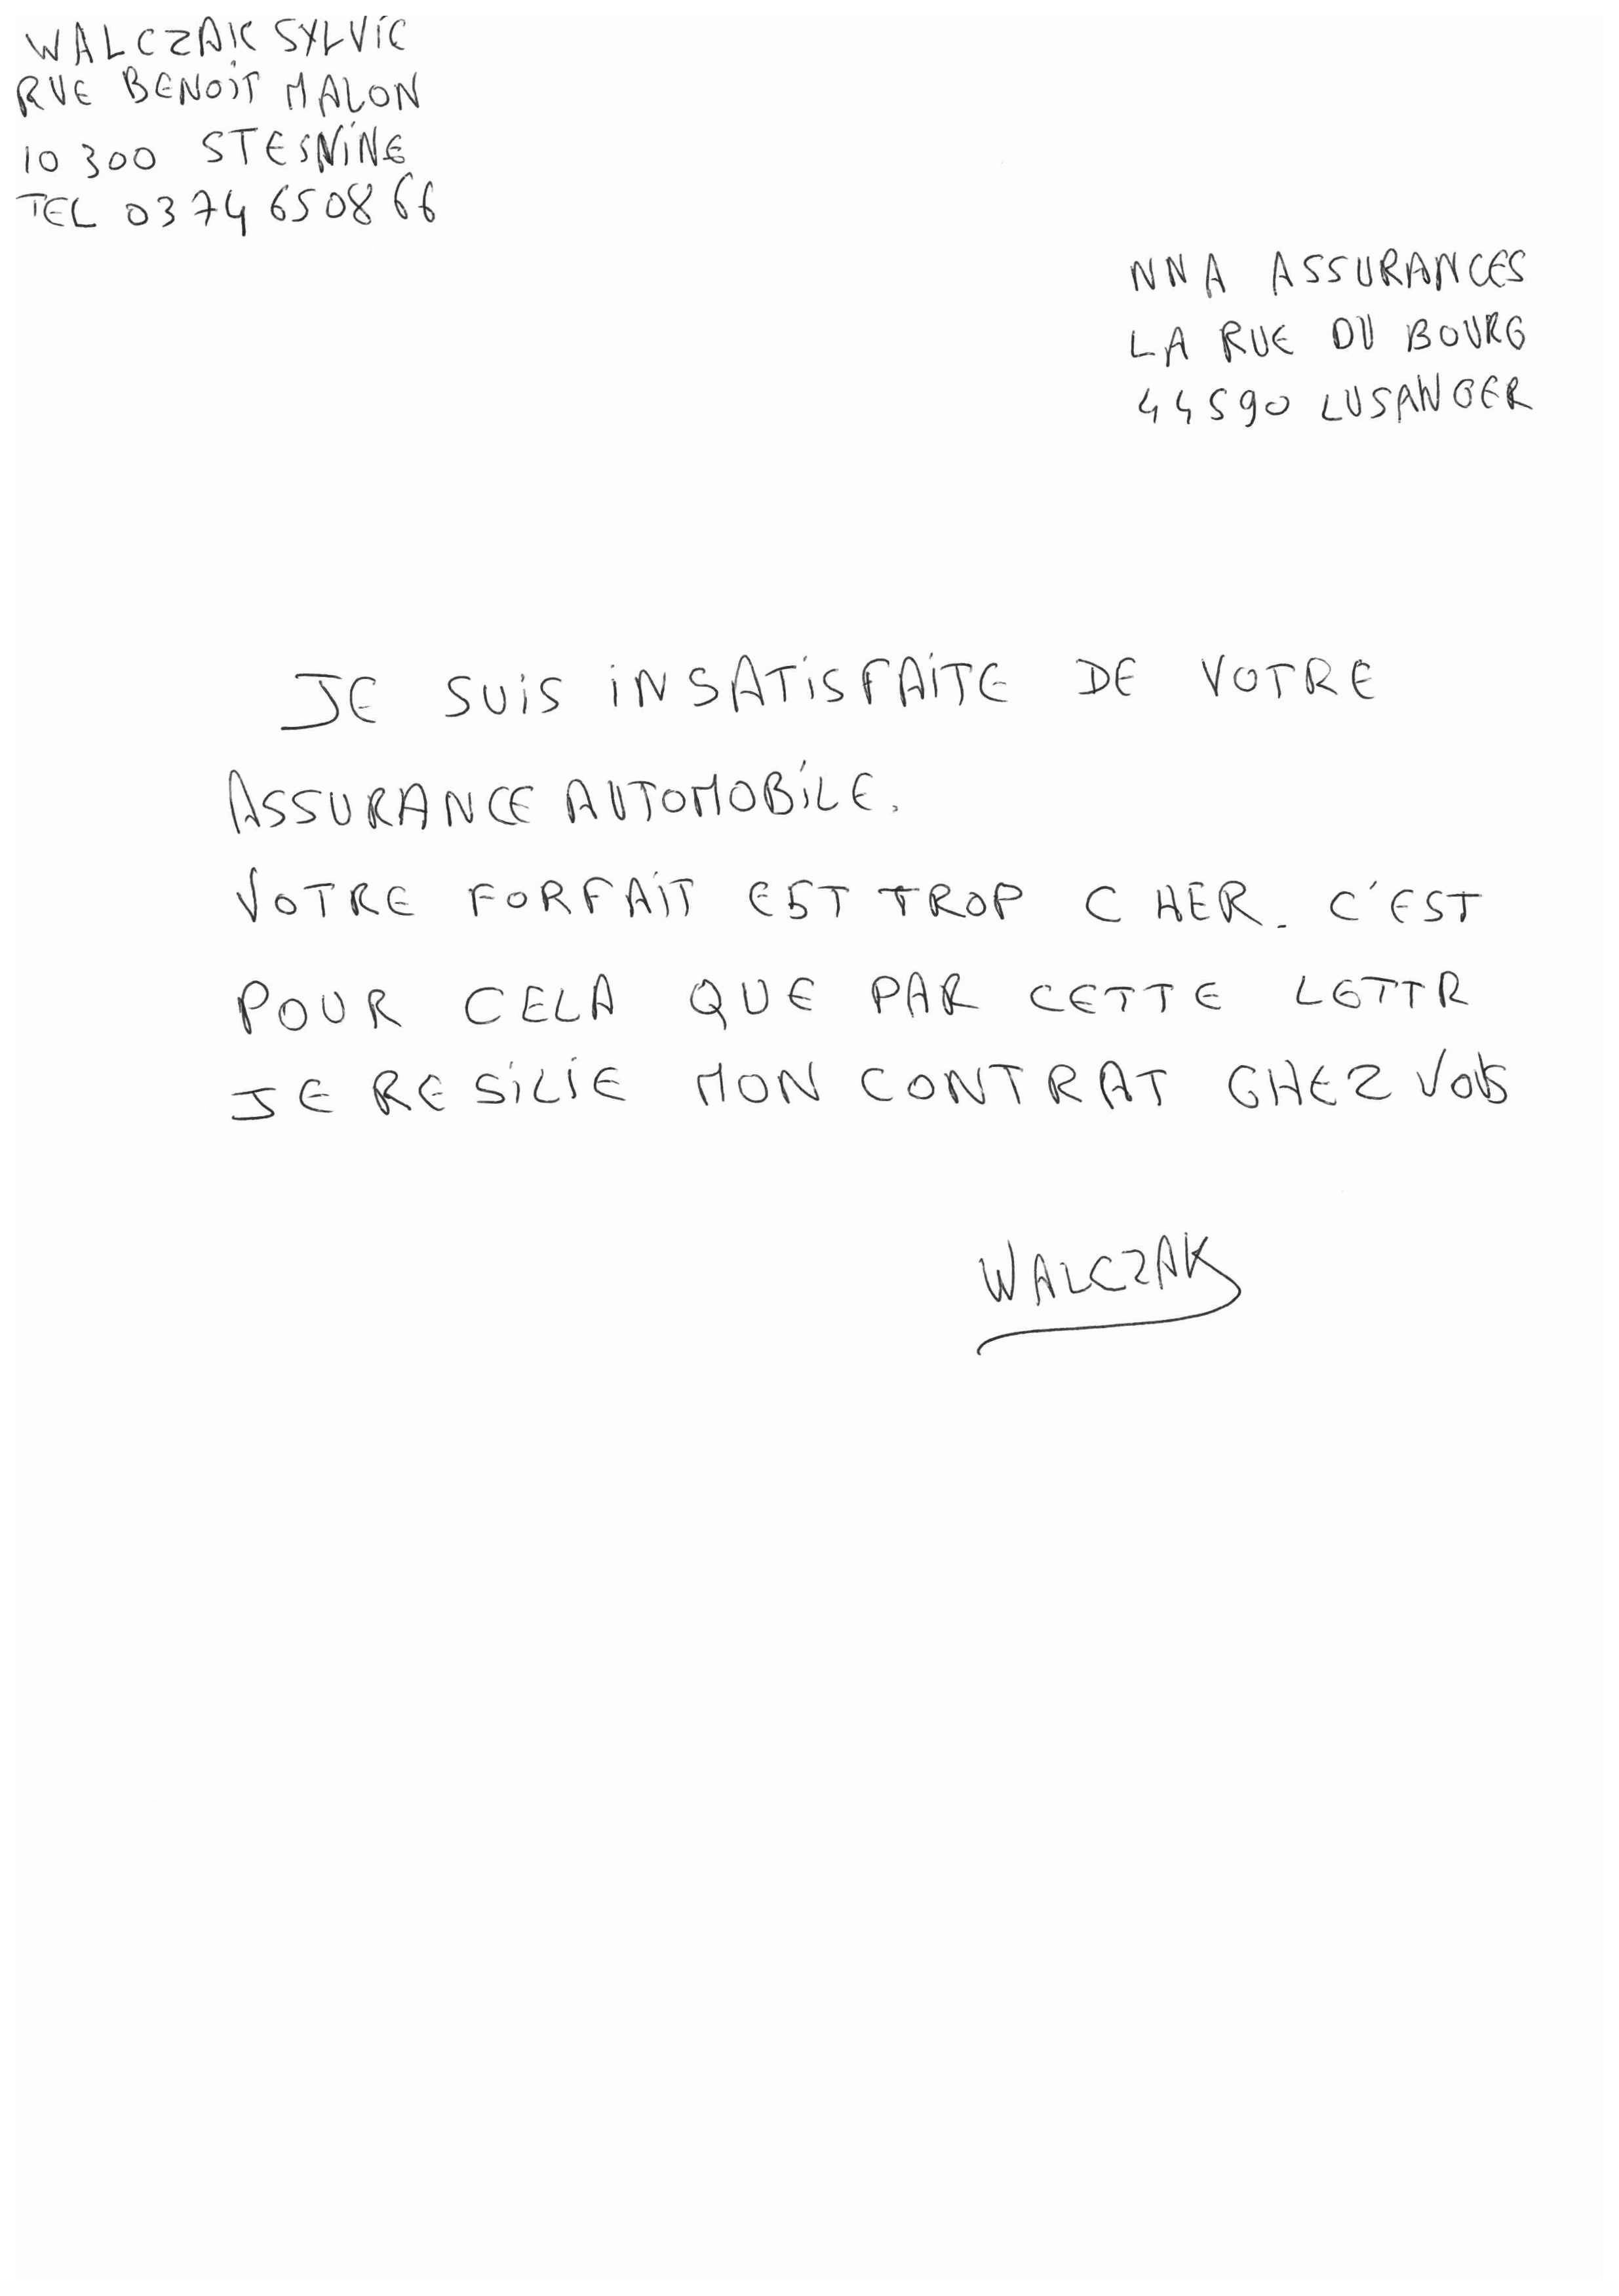 WALCZAK SYLVIE
RUE BENOIT MALON
10 300 STESNINE
TEL 03 74 65 08 66
NNA ASSURANCES
LA RUE DU BOURG
44590 LUSANGER
JE SUIS INSATISFAITE DE VOTRE
ASSURANCE AUTOMOBILE.
VOTRE FORFAIT EST TROP CHER. C'EST
POUR CELA QUE PAR CETTE LETTR
JE RESILIE MON CONTRAT CHEZ VOUS
WALCZAK